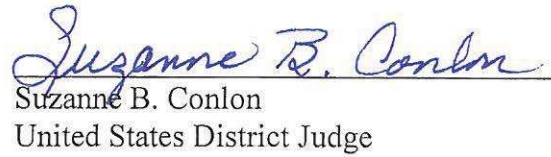 Suzanne B. Conlon
Suzanne B. Conlon
United States District Judge